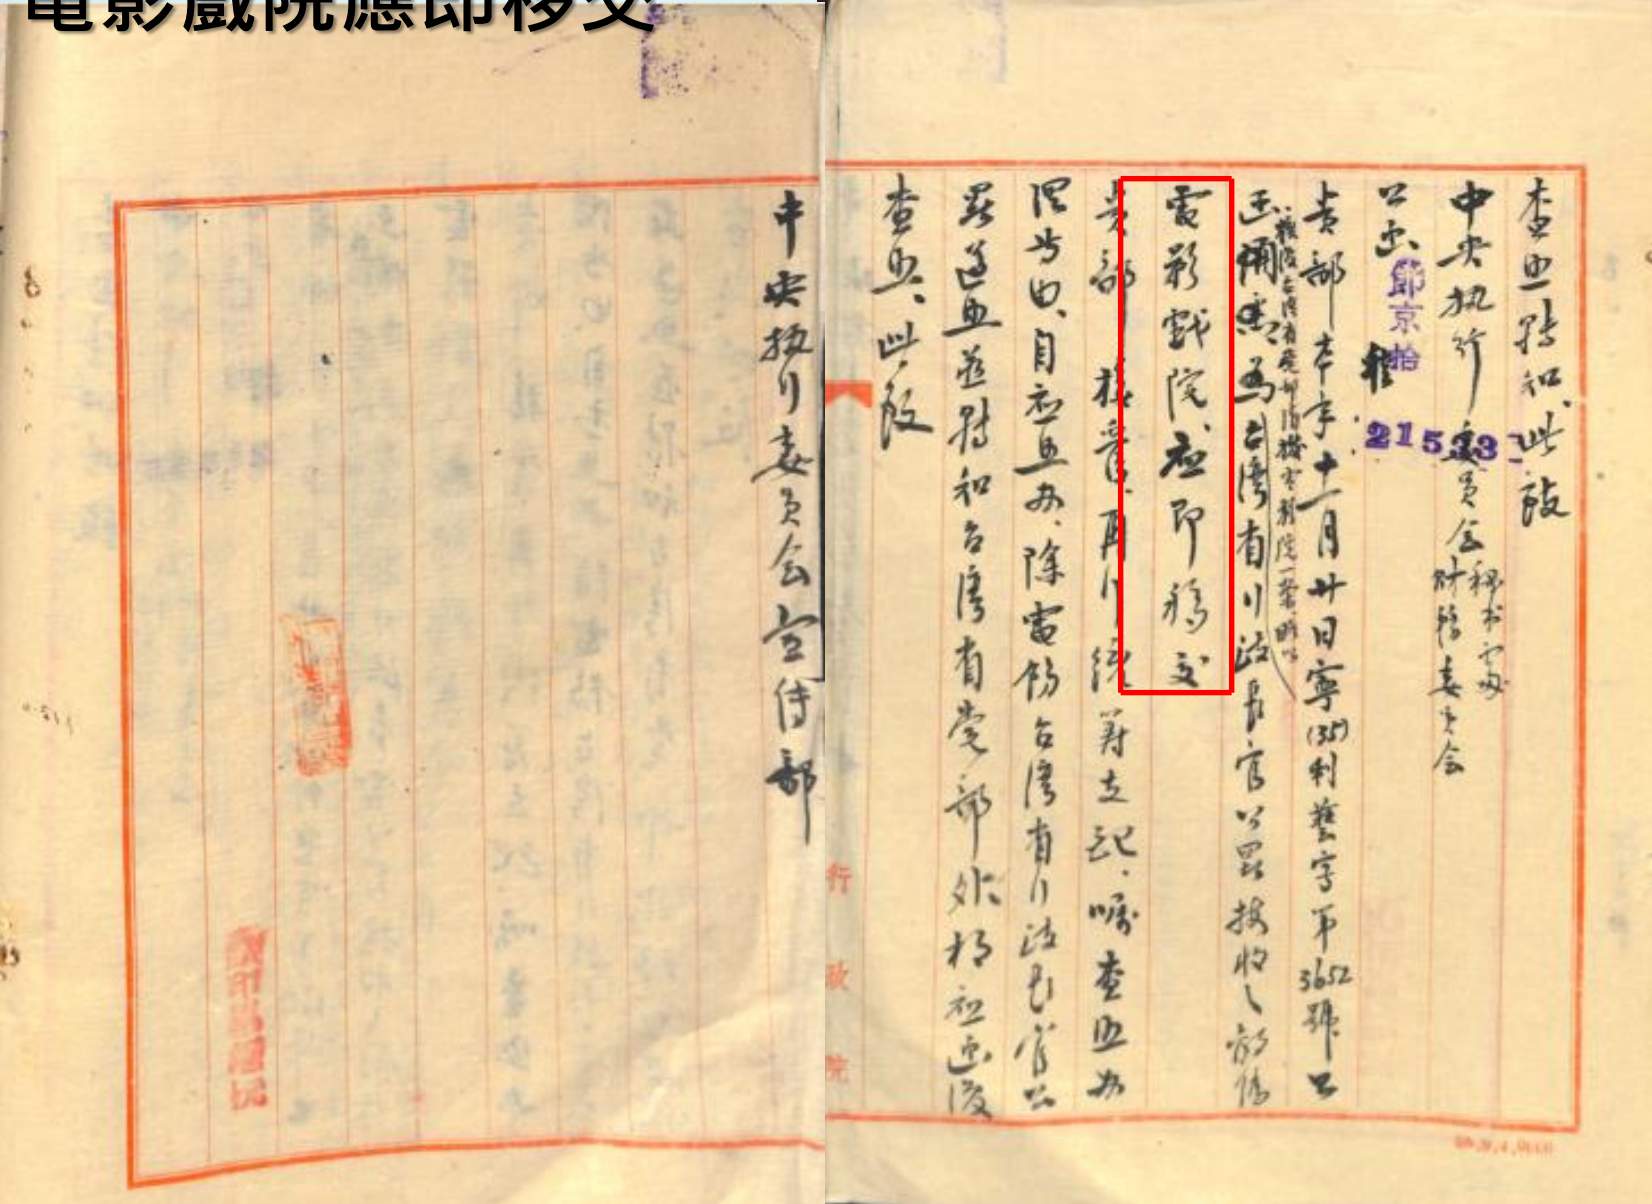 電影戲院應即移交
查照轉知。此致
中央执行委員会秘书處
財務委員会
公函
節京拾
21533
貴部本年十一月廿日寧(35)利藝字第3652號公
函
為台灣省行政長官公署接收之敵偽
電影戲院、应即移交
貴部接管、再行統籌支配、囑查照办
理等由、自应照办、除電飭台灣省行政長官公
署遵照並轉知台灣省党部外、相应函復
查照、此致
中央执行委員会宣傳部
行政院